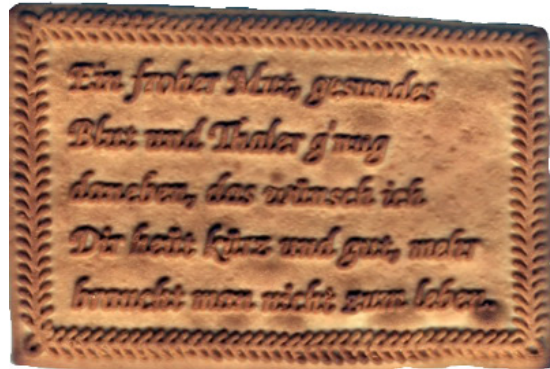 Ein froher Mut, gesundes
Blut und Thaler g'nug
daneben, das wünsch ich
Dir heüt kürz und gut, mehr
braucht man nicht zum leben.